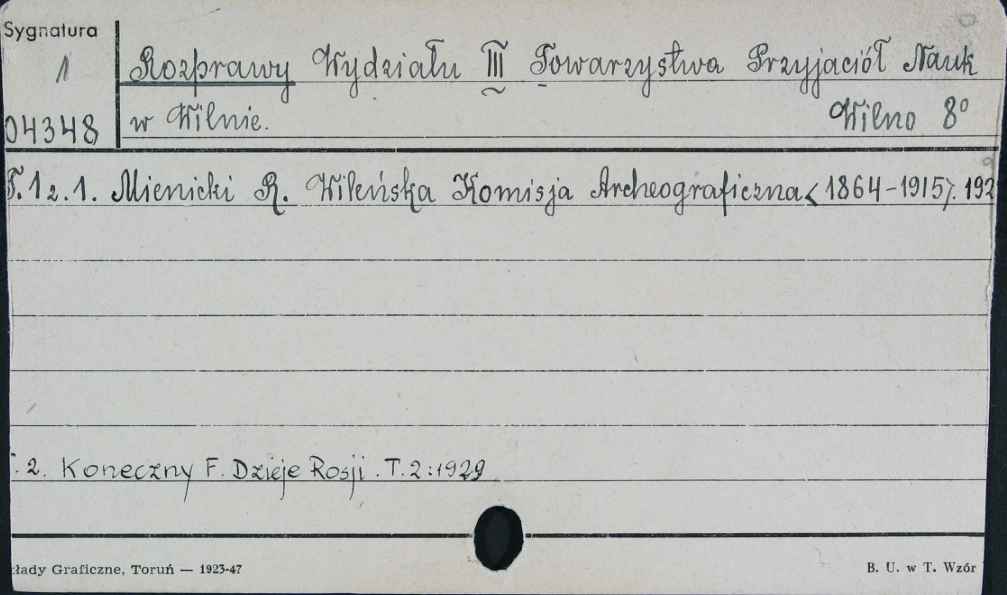 Sygnatura
1
04348
Rozprawy Wydziału III Towarzystwa Przyjaciół Nauk
w Wilnie. Wilno 8°
T. 1 z. 1. Mienicki R. Wileńska Komisja Archeograficzna <1864-1915>. 192
. 2. Koneczny F. Dzieje Rosji. T. 2: 1929
kłady Graficzne, Toruń — 1923-47
B. U. w T. Wzór